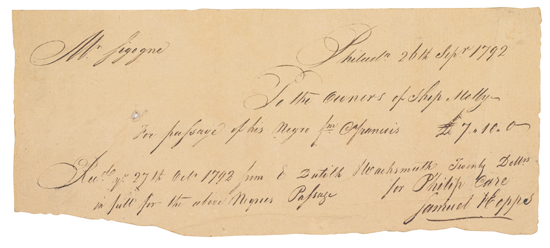 Mr Gigogne
Philada 26th Sepr 1792
To the Owners of Ship Molly
For passage of his Negro fm Cfrancois £ 7.10.0
Recd ye 27th Octr 1792 from E Dutilh Wachsmuth Twenty Dollrs
in full for the above Negroes Passage for Philip Care
Samuel Hopps